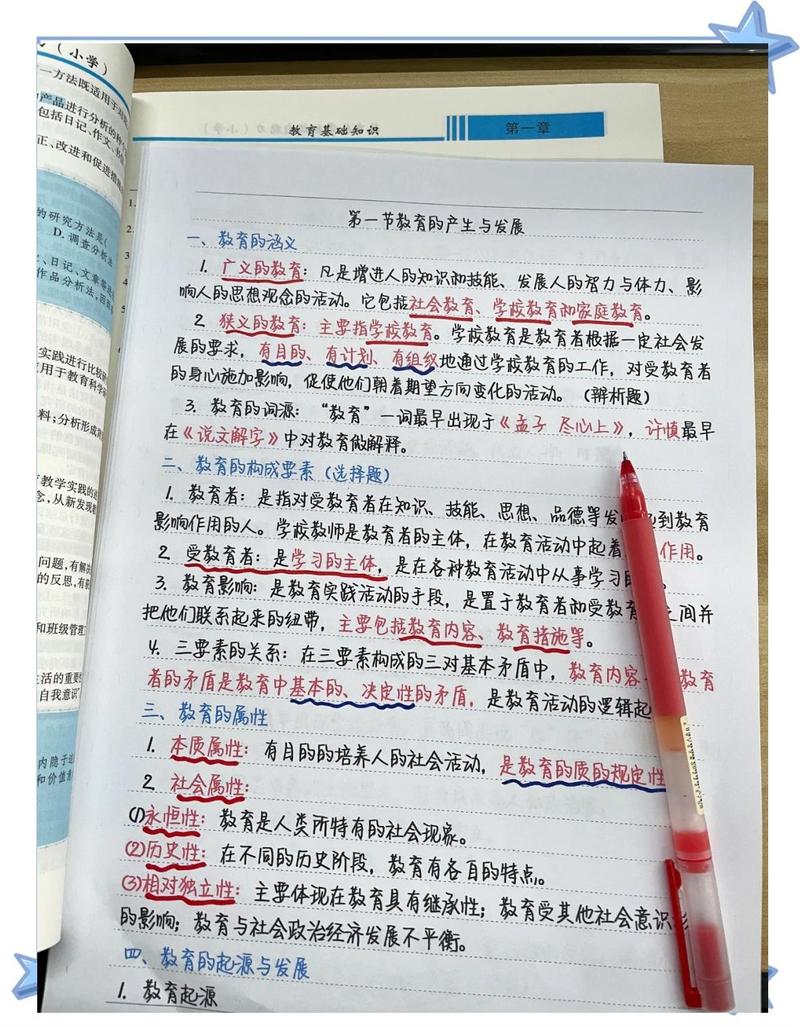 （小学）
一方法既适用于对
产品进行分析的
包括日记、作文、书
正、改进和促进措
的研究方法是（
D. 调查分析法
、日记、文章等
作品分析法，因
实践进行比较
应用于教育科学
料；分析形成
教学实践的
念，从新发现
问题，有解决
的反思，有
和班级管理
生活的重要
自我意识
内隐于
和价值
教育基础知识
第一章
1.
2.
3
4
5
第一节教育的产生与发展
一、教育的涵义
1. 广义的教育：凡是增进人的知识和技能、发展人的智力与体力、影
响人的思想观念的活动。它包括社会教育、学校教育和家庭教育。
2. 狭义的教育：主要指学校教育。学校教育是教育者根据一定社会发
展的要求，有目的、有计划、有组织地通过学校教育的工作，对受教育者
的身心施加影响，促使他们朝着期望方向变化的活动。（辨析题）
3. 教育的词源：“教育”一词最早出现于《孟子 尽心上》，许慎最早
在《说文解字》中对教育做解释。
二、教育的构成要素（选择题）
1. 教育者：是指对受教育者在知识、技能、思想、品德等发 到教育
影响作用的人。学校教师是教育者的主体，在教育活动中起着 作用。
2. 受教育者：是学习的主体，是在各种教育活动中从事学习的
3. 教育影响：是教育实践活动的手段，是置于教育者和受教育 之间并
把他们联系起来的纽带，主要包括教育内容、教育措施等。
4. 三要素的关系：在三要素构成的三对基本矛盾中，教育内容 教育
者的矛盾是教育中基本的、决定性的矛盾，是教育活动的逻辑起
三、教育的属性
1. 本质属性：有目的的培养人的社会活动，是教育的质的规定性
2. 社会属性：
(1)永恒性：教育是人类所特有的社会现象。
(2)历史性：在不同的历史阶段，教育有各自的特点。
(3)相对独立性：主要体现在教育具有继承性；教育受其他社会意识形
的影响；教育与社会政治经济发展不平衡。
四、教育的起源与发展
1. 教育起源